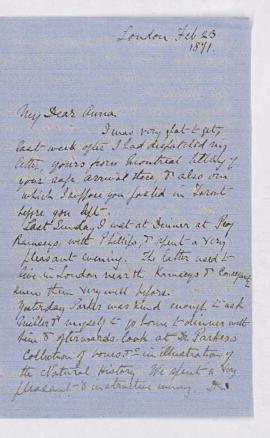 London Feb 23
1871.
My Dear Anna
I was very glad to get,
last week after I had despatched my
letter, yours from Montreal telling of
your safe arrival there, & also one
which I suppose you posted in
before you left.
Last Sunday I was at Dinner at Prof
Ramsays with Phillips, & spent a very
pleasant evening. The latter used to
live in London near the Ramsays &
knew them very well before.
Yesterday Parker was kind enough to ask
& myself to go home to dinner with
him & afterwards look at Dr Parkers
Collection of bones &c in illustration of
the Natural History. We spent a very
pleasant & instructive evening. Dr